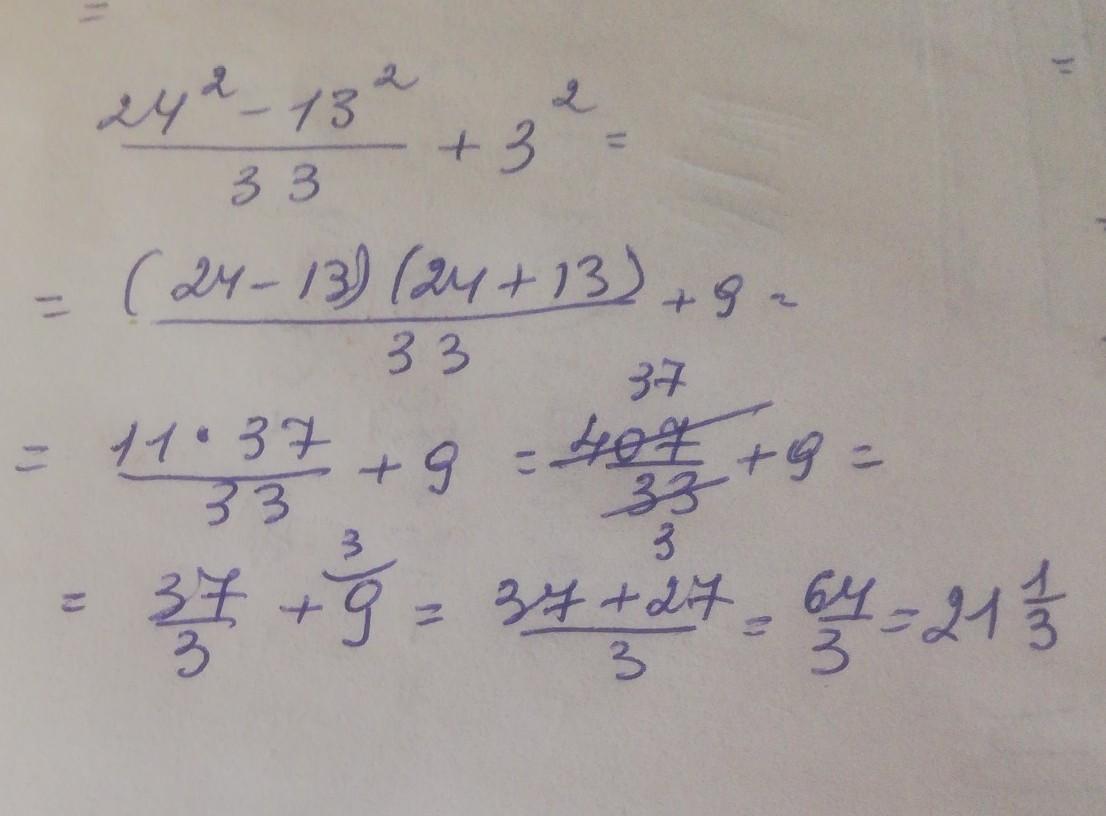 =
=
(24² - 13²)/33 + 3² =
= ((24 - 13)(24 + 13))/33 + 9 =
= (11 · 37)/33 + 9 = 407/33 + 9 =
37
3
= 37/3 + 9 = (37 + 27)/3 = 64/3 = 21 1/3
3